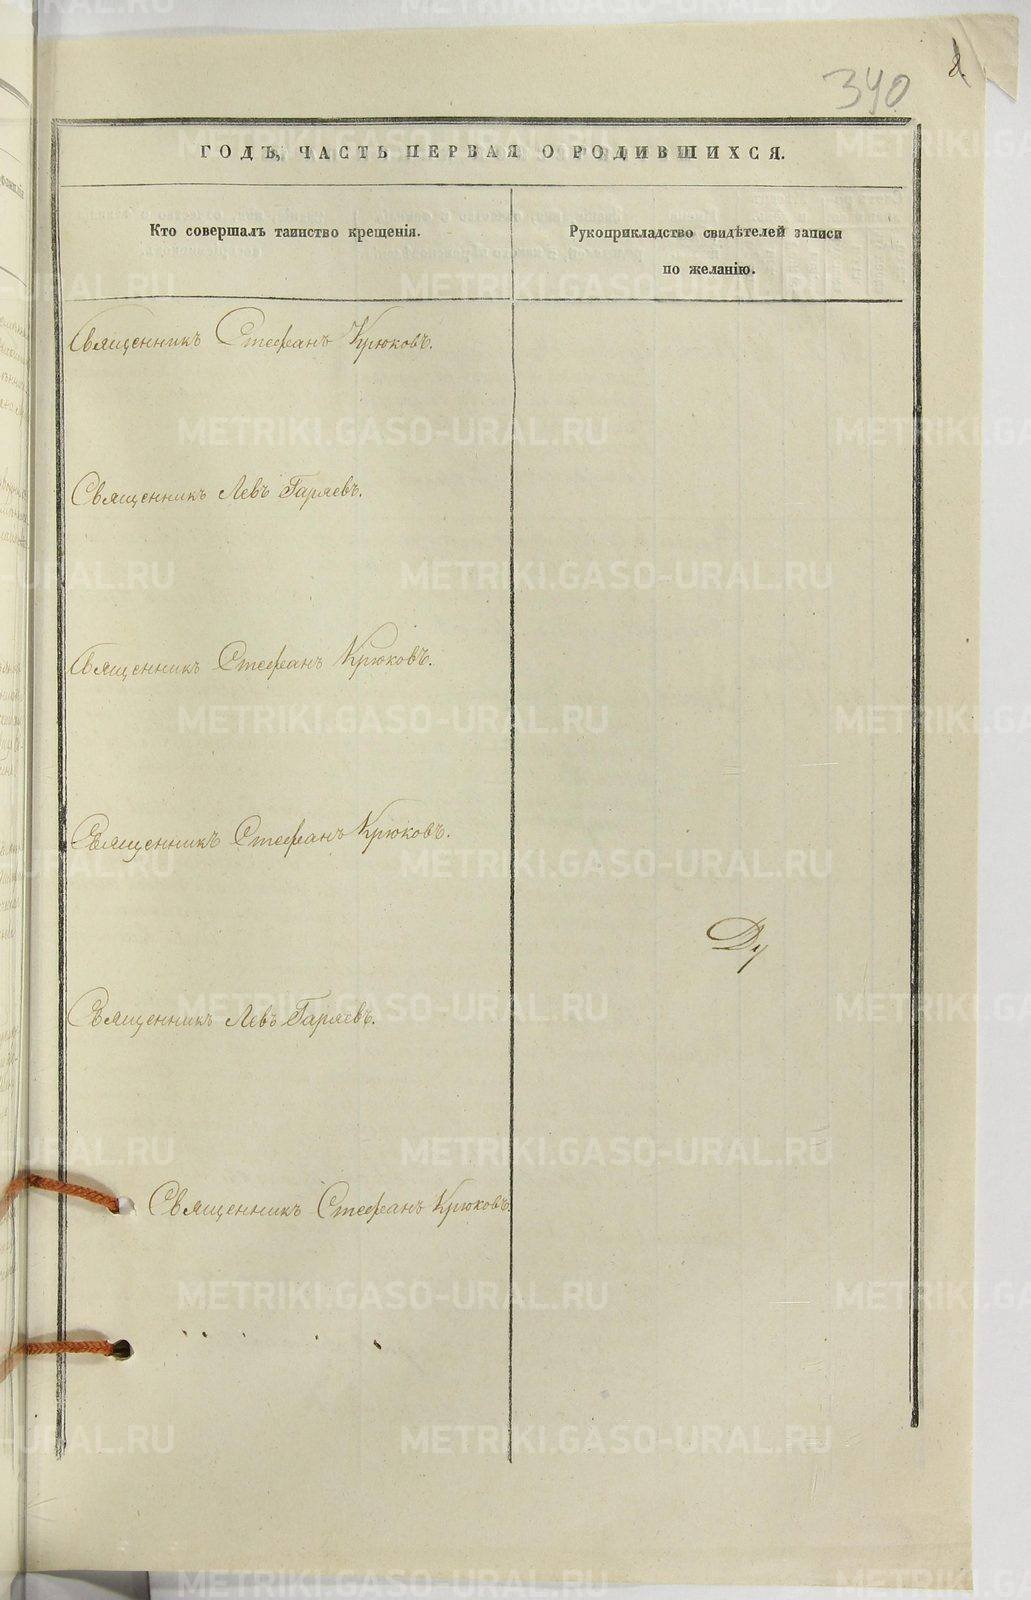 340
2.
ГОДЪ, ЧАСТЬ ПЕРВАЯ О РОДИВШИХСЯ.
Кто совершалъ таинство крещенія.
Рукоприкладство свидѣтелей записи
по желанію.
Священникъ Стефанъ Крюковъ.
Священникъ Левъ Гаряевъ.
Священникъ Стефанъ Крюковъ.
Священникъ Стефанъ Крюковъ.
Ду
Священникъ Левъ Гаряевъ.
Священникъ Стефанъ Крюковъ.
METRIKI.GASO-URAL.RU